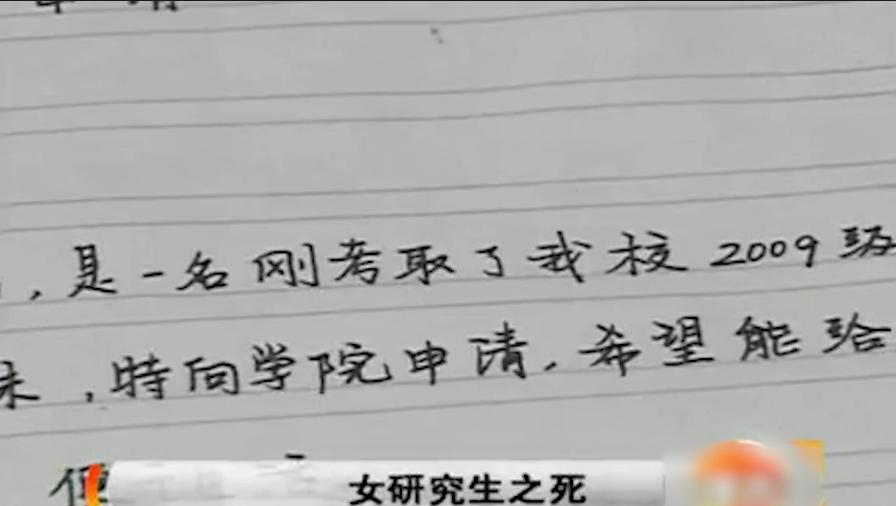 ，是一名刚考取了我校2009级
，特向学院申请，希望能给
女研究生之死